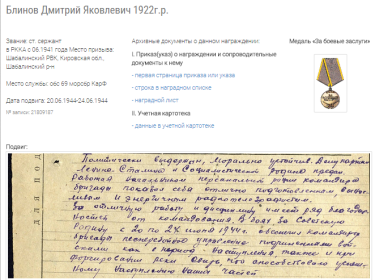 Блинов Дмитрий Яковлевич 1922г.р.
Звание: ст. сержант
в РККА с 06.1941 года Место призыва:
Шабалинский РВК, Кировская обл.,
Шабалинский р-н
Место службы: обс 69 морсбр КарФ
Дата подвига: 20.06.1944-24.06.1944
№ записи: 21839187
Архивные документы о данном награждении:
I. Приказ(указ) о награждении и сопроводительные
документы к нему
- первая страница приказа или указа
- строка в наградном списке
- наградной лист
II. Учетная картотека
- данные в учетной картотеке
Медаль «За боевые заслуги»
Подвиг:
для под
Политически выдержан, Морально устойчив. Делу партии
Ленина Сталина и Социалистической родине предан.
Работая начальником персональной рации командира
бригады показал себя отлично подготовленным
и энергичным радиотелеграфистом.
За отличную работу и дисциплину имеет ряд благодар-
ностей от командования. В боях за Советскую
Родину с 20 по 24 июня 1944г. обеспечил командиру
бригады бесперебойное управление подразделениями
как в период наступления также и при
форсировании реки Свирь,
наступлению наших частей